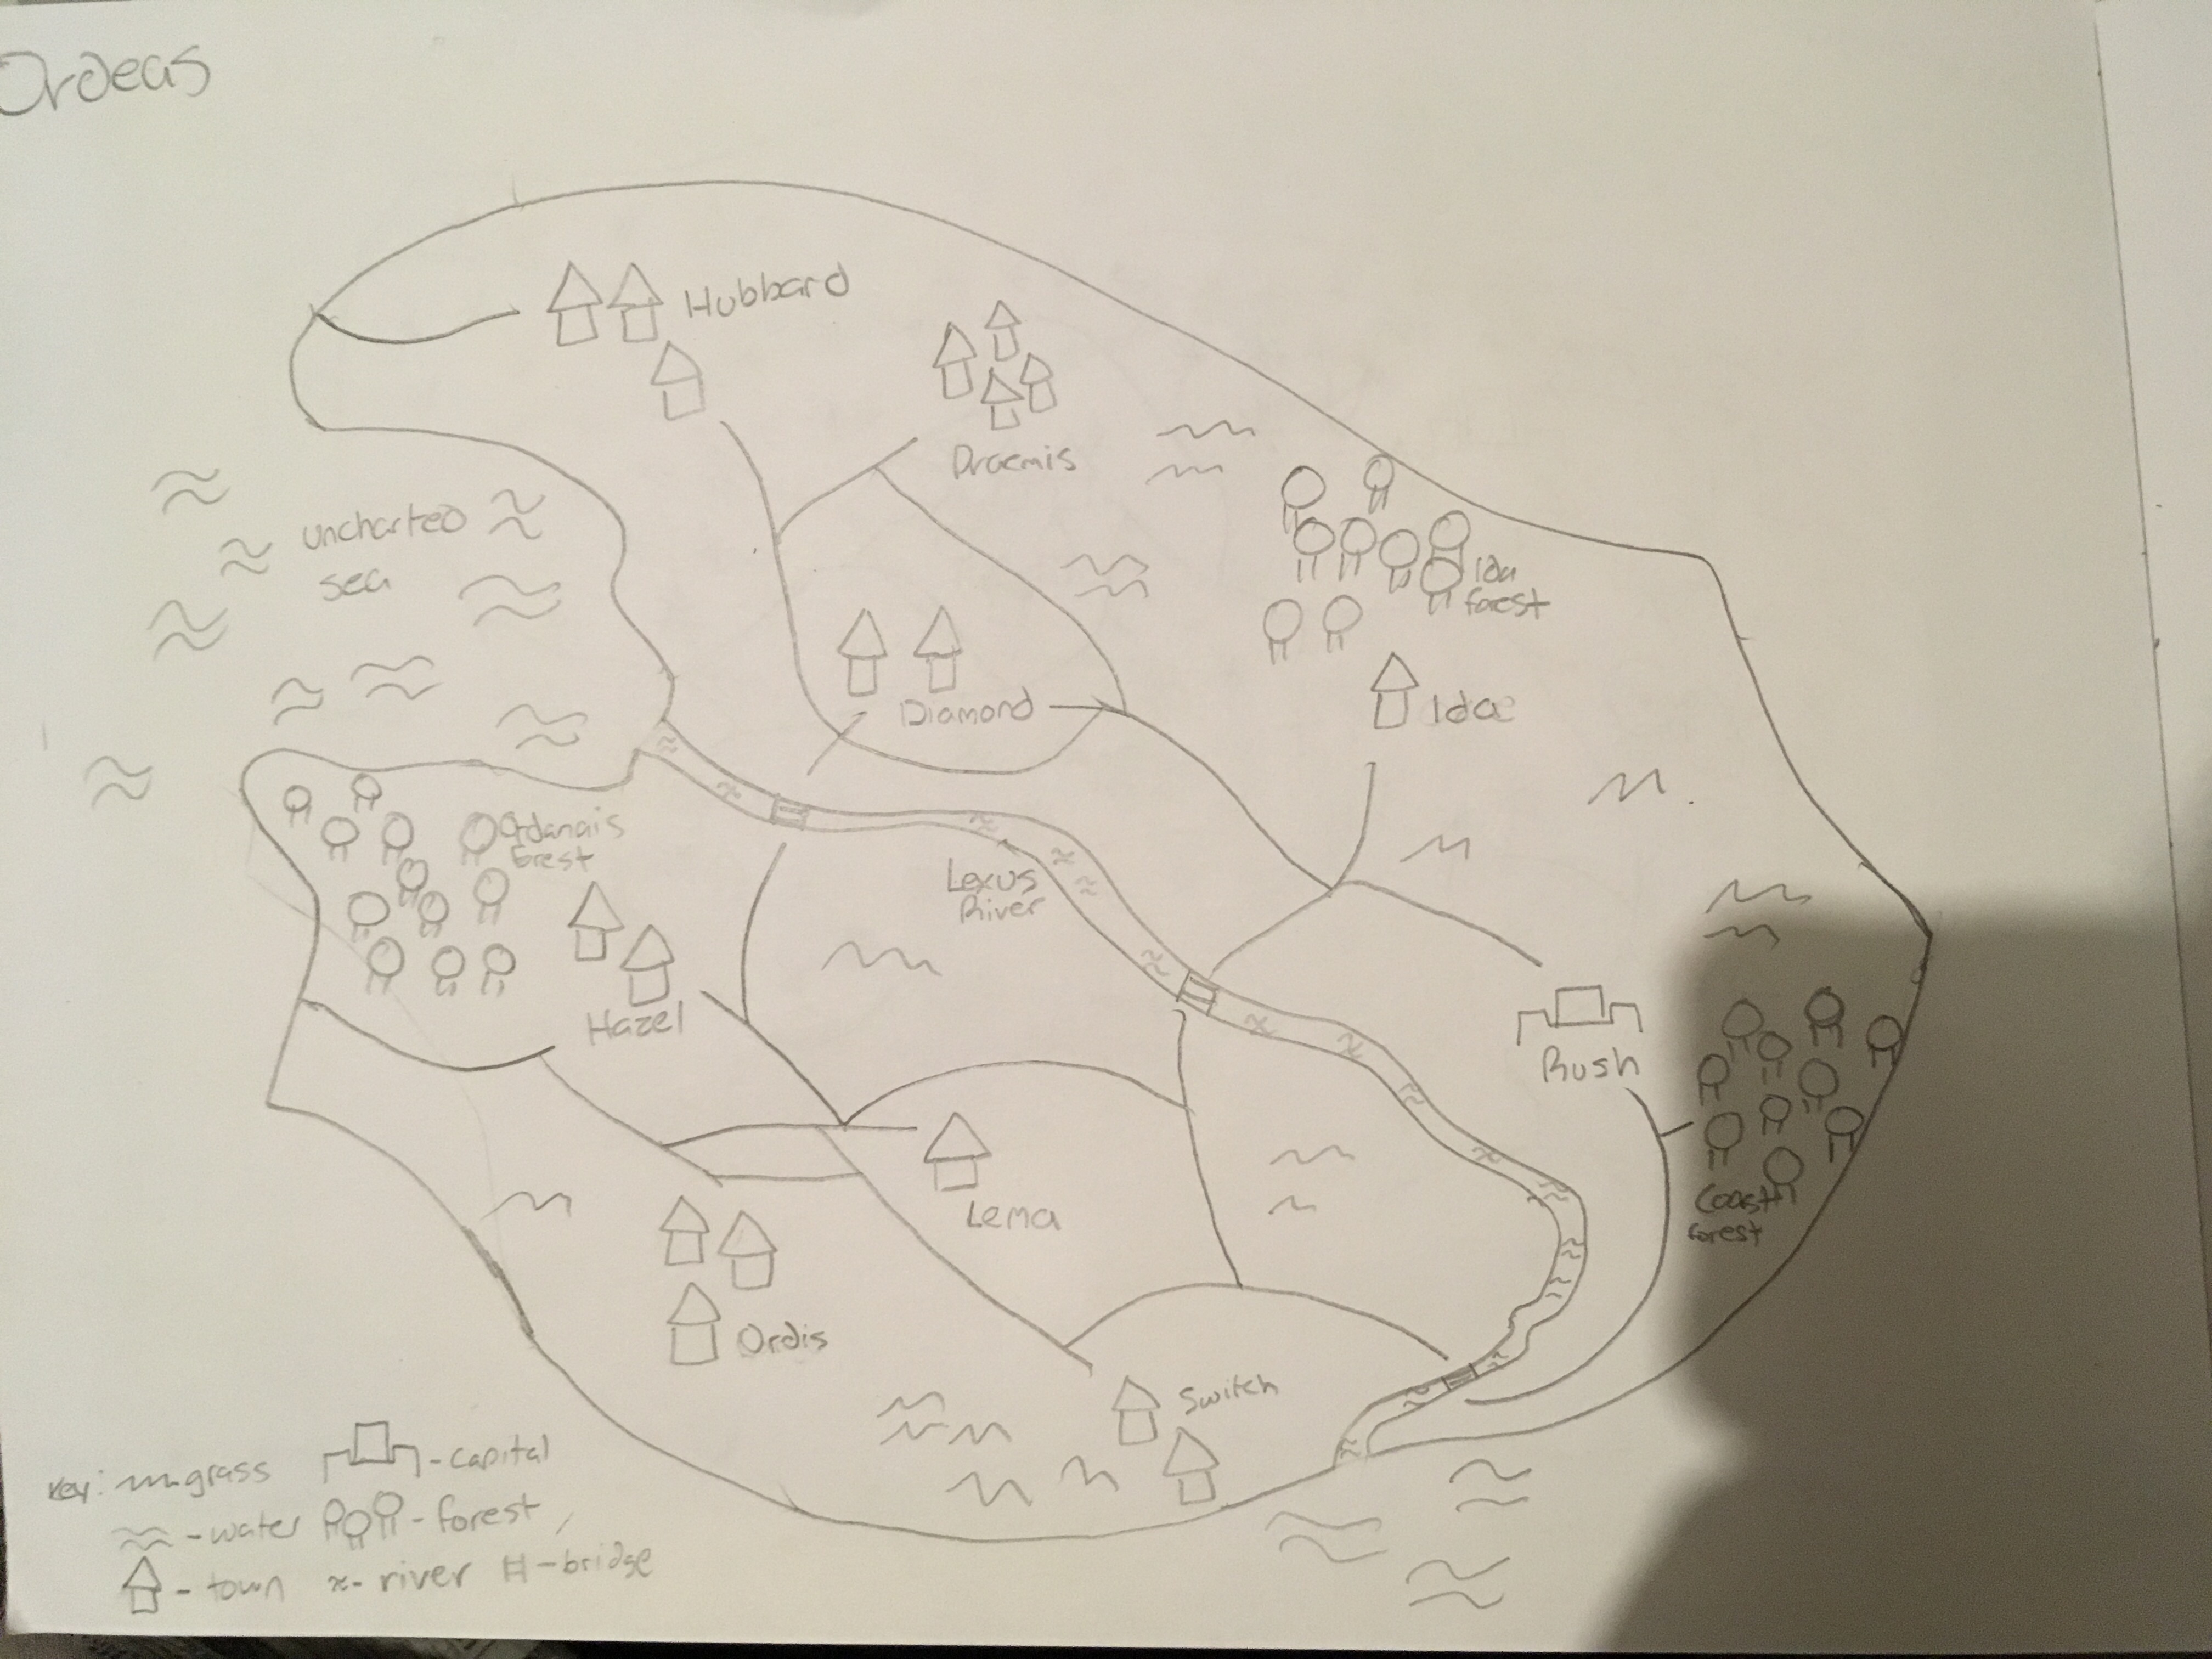 Ordeas
Hubbard
Draemis
uncharted
sea
Ida
forest
Diamond
Idae
Odanais
forest
Lexus
River
Hazel
Rush
Lema
Coast
forest
Ordis
Switch
key: grass - capital
- water - forest
- town - river H - bridge